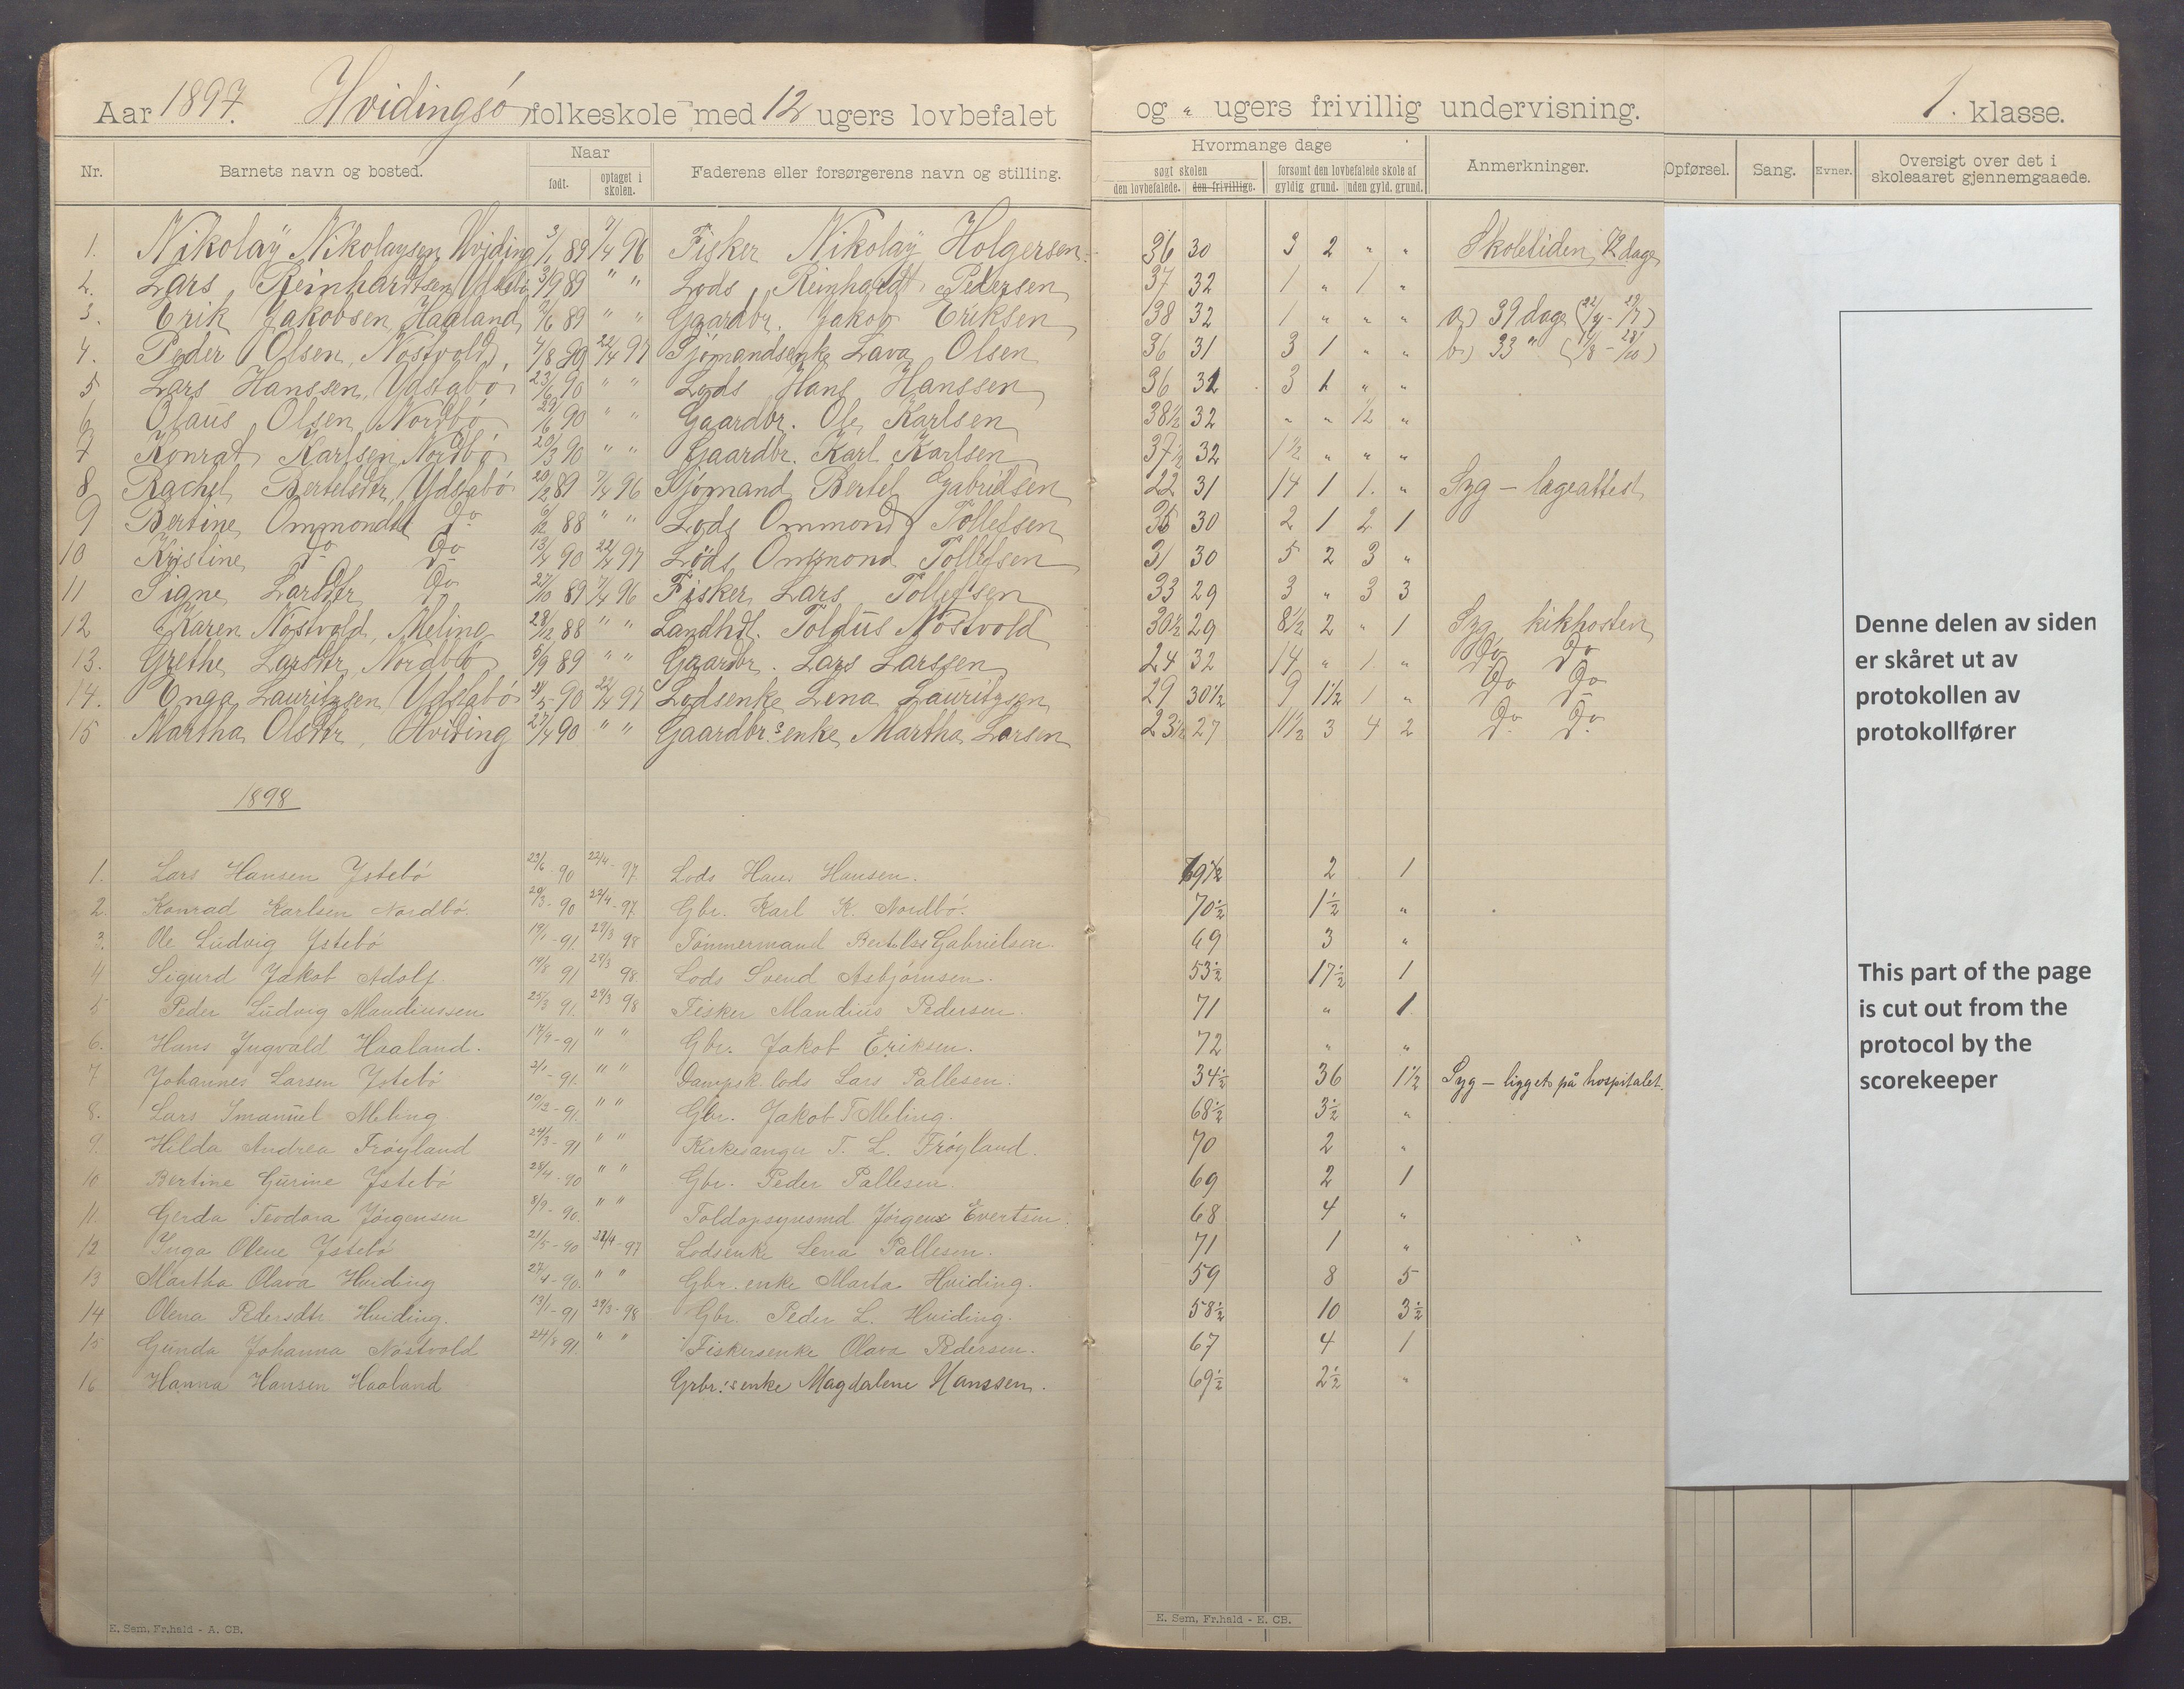 Aar 1897. Hvidingsö folkeskole med 12 ugers lovbefalet og " ugers frivillig undervisning. 1. klasse.
Nr. Barnets navn og bosted. Naar født. optaget i skolen. Faderens eller forsørgerens navn og stilling. Hvormange dage søgt skolen den lovbefalede. den frivillige. forsømt den lovbefalede skole af gyldig grund. uden gyld. grund. Anmerkninger. Opførsel. Sang. Evner. Oversigt over det i skoleaaret gjennemgaaede.
1. Nikolaÿ Nikolaysen Hviding 3/1 89 7/4 96 Fisker Nikolaÿ Holgersen 36 30 3 2 " " Skoletiden 72 dage
2. Lars Reinhardtsen 89 " " Lods Reinhardt Pedersen 37 32 1 " 1 "
3. Erik Jakobsen Haaland 89 " " Gaardbr. Jakob Eriksen 38 32 1 " " " a) 39 dage
4. Peder Olsen, Nöstvold 22/4 97 Sjömandsenke Lava Olsen 36 31 3 1 " " b) 33 "
5 Lars Hanssen, Udstabö 23/6 90 " " Lods Hans Hanssen 36 3 1 " "
6 Olaus Olsen Nordbö 90 " " Gaardbr. Ole Karlsen 38½ 32 " " ½ "
7 Konrat Karlsen Nordbö 20/3 90 " " Gaardbr. Karl Karlsen 37½ 32 1½ " " "
8 Rachel Bertelsdtr, Udstabö 20/2 89 7/4 96 Sjömand Bertel Gabrielsen 22 31 14 1 1. " Syg - lægeattest
9 Bertine Ommondsd Do 88 " " Lods Ommond Tollefsen 35 30 2 1 2 1
10 Kristine Do Do 90 22/4 97 Lods Ommond Tollefsen 31 30 5 2 3 "
11 Signe Larsdtr Do 27/10 89 7/4 96 Fisker Lars Tollefsen 33 29 3 " 3 3
12 Karen Nöstvold, Meling 28/12 88 " " Landhdl. Toldus Nöstvold 30½ 29 8½ 2 " 1 Syg kikhosten
13. Grethe Larsdtr, Nordbö 5/9 89 " " Gaardbr. Lars Larssen 24 32 14 " 1 " Do Do
14. Enga Lauritzsen Udstabö 21/5 90 22/4 97 Lodsenke Lena Lauritzsen 29 30½ 9 1½ 1 " Do Do
15 Martha Olsdtr, Hviding 27/4 90 " " Gaardbr.s enke Martha Larsen 23½ 27 11½ 3 4 2 Do Do
1898
1. Lars Hansen Ystebö 23/6 90 22/4 - 97. Lods Hans Hansen. 69½ 2 1
2. Konrad Karlsen Nordbö. 20/3 - 90 22/4 - 97 Gbr. Karl K. Nordbö. 70½ 1½ "
3. Ole Ludvig Ystebö 19/1 - 91. 29/3 98 Tömmermand Bertels Gabrielsen. 69 3 "
4 Sigurd Jakob Adolf. 19/8 91 29/3 98. Lods Svend Asbjörnsen. 53½ 17½ 1
5 Peder Ludvig Mandiussen 25/3 91. 29/3 98 Fisker Mandius Pedersen. 71 " 1.
6. Hans Ingvald Haaland. 17/9 - 91 " " Gbr. Jakob Eriksen. 72 " "
7 Johannes Larsen Ystebö 2/1 - 91. " " Dampsk. lods Lars Pallesen. 34½ 36 1½ Syg - ligget på hospitalet.
8. Lars Imanuel Meling. 10/12 - 91. " " Gbr. Jakob T Meling. 68½ 3½ "
9. Hilda Andrea Fröyland 24/3 - 91 " " Kirkesanger T. L. Fröyland. 70 2 "
10 Bertine Gurine Ystebö 28/4 - 90 " " Gbr. Peder Pallesen. 69 2 1
11. Gerda Teodora Jörgensen 8/9 - 90. " " Toldopsynsmd Jörgen Evertsen. 68 4 "
12 Inga Olene Ystebö 21/5 - 90 22/4 - 97 Lodsenke Lena Pallesen. 71 1 "
13 Martha Olava Hviding 27/4 - 90. " " Gbr. enke Marta Hviding. 59 8 5
14 Olena Pedersdtr Hviding. 13/1 - 91 29/3 - 98 Gbr. Peder L. Hviding. 58½ 10 3½
15 Gunda Johanna Nöstvold 24/8 91. " " Fiskersenke Olava Pedersen. 67 4 1
16 Hanna Hansen Haaland Grbr.'s enke Magdalene Hanssen. 69½ 2½ "
Denne delen av siden
er skåret ut av
protokollen av
protokollfører
This part of the page
is cut out from the
protocol by the
scorekeeper
E. Sem, Fr.hald - A. CB.
E. Sem, Fr.hald - E. CB.